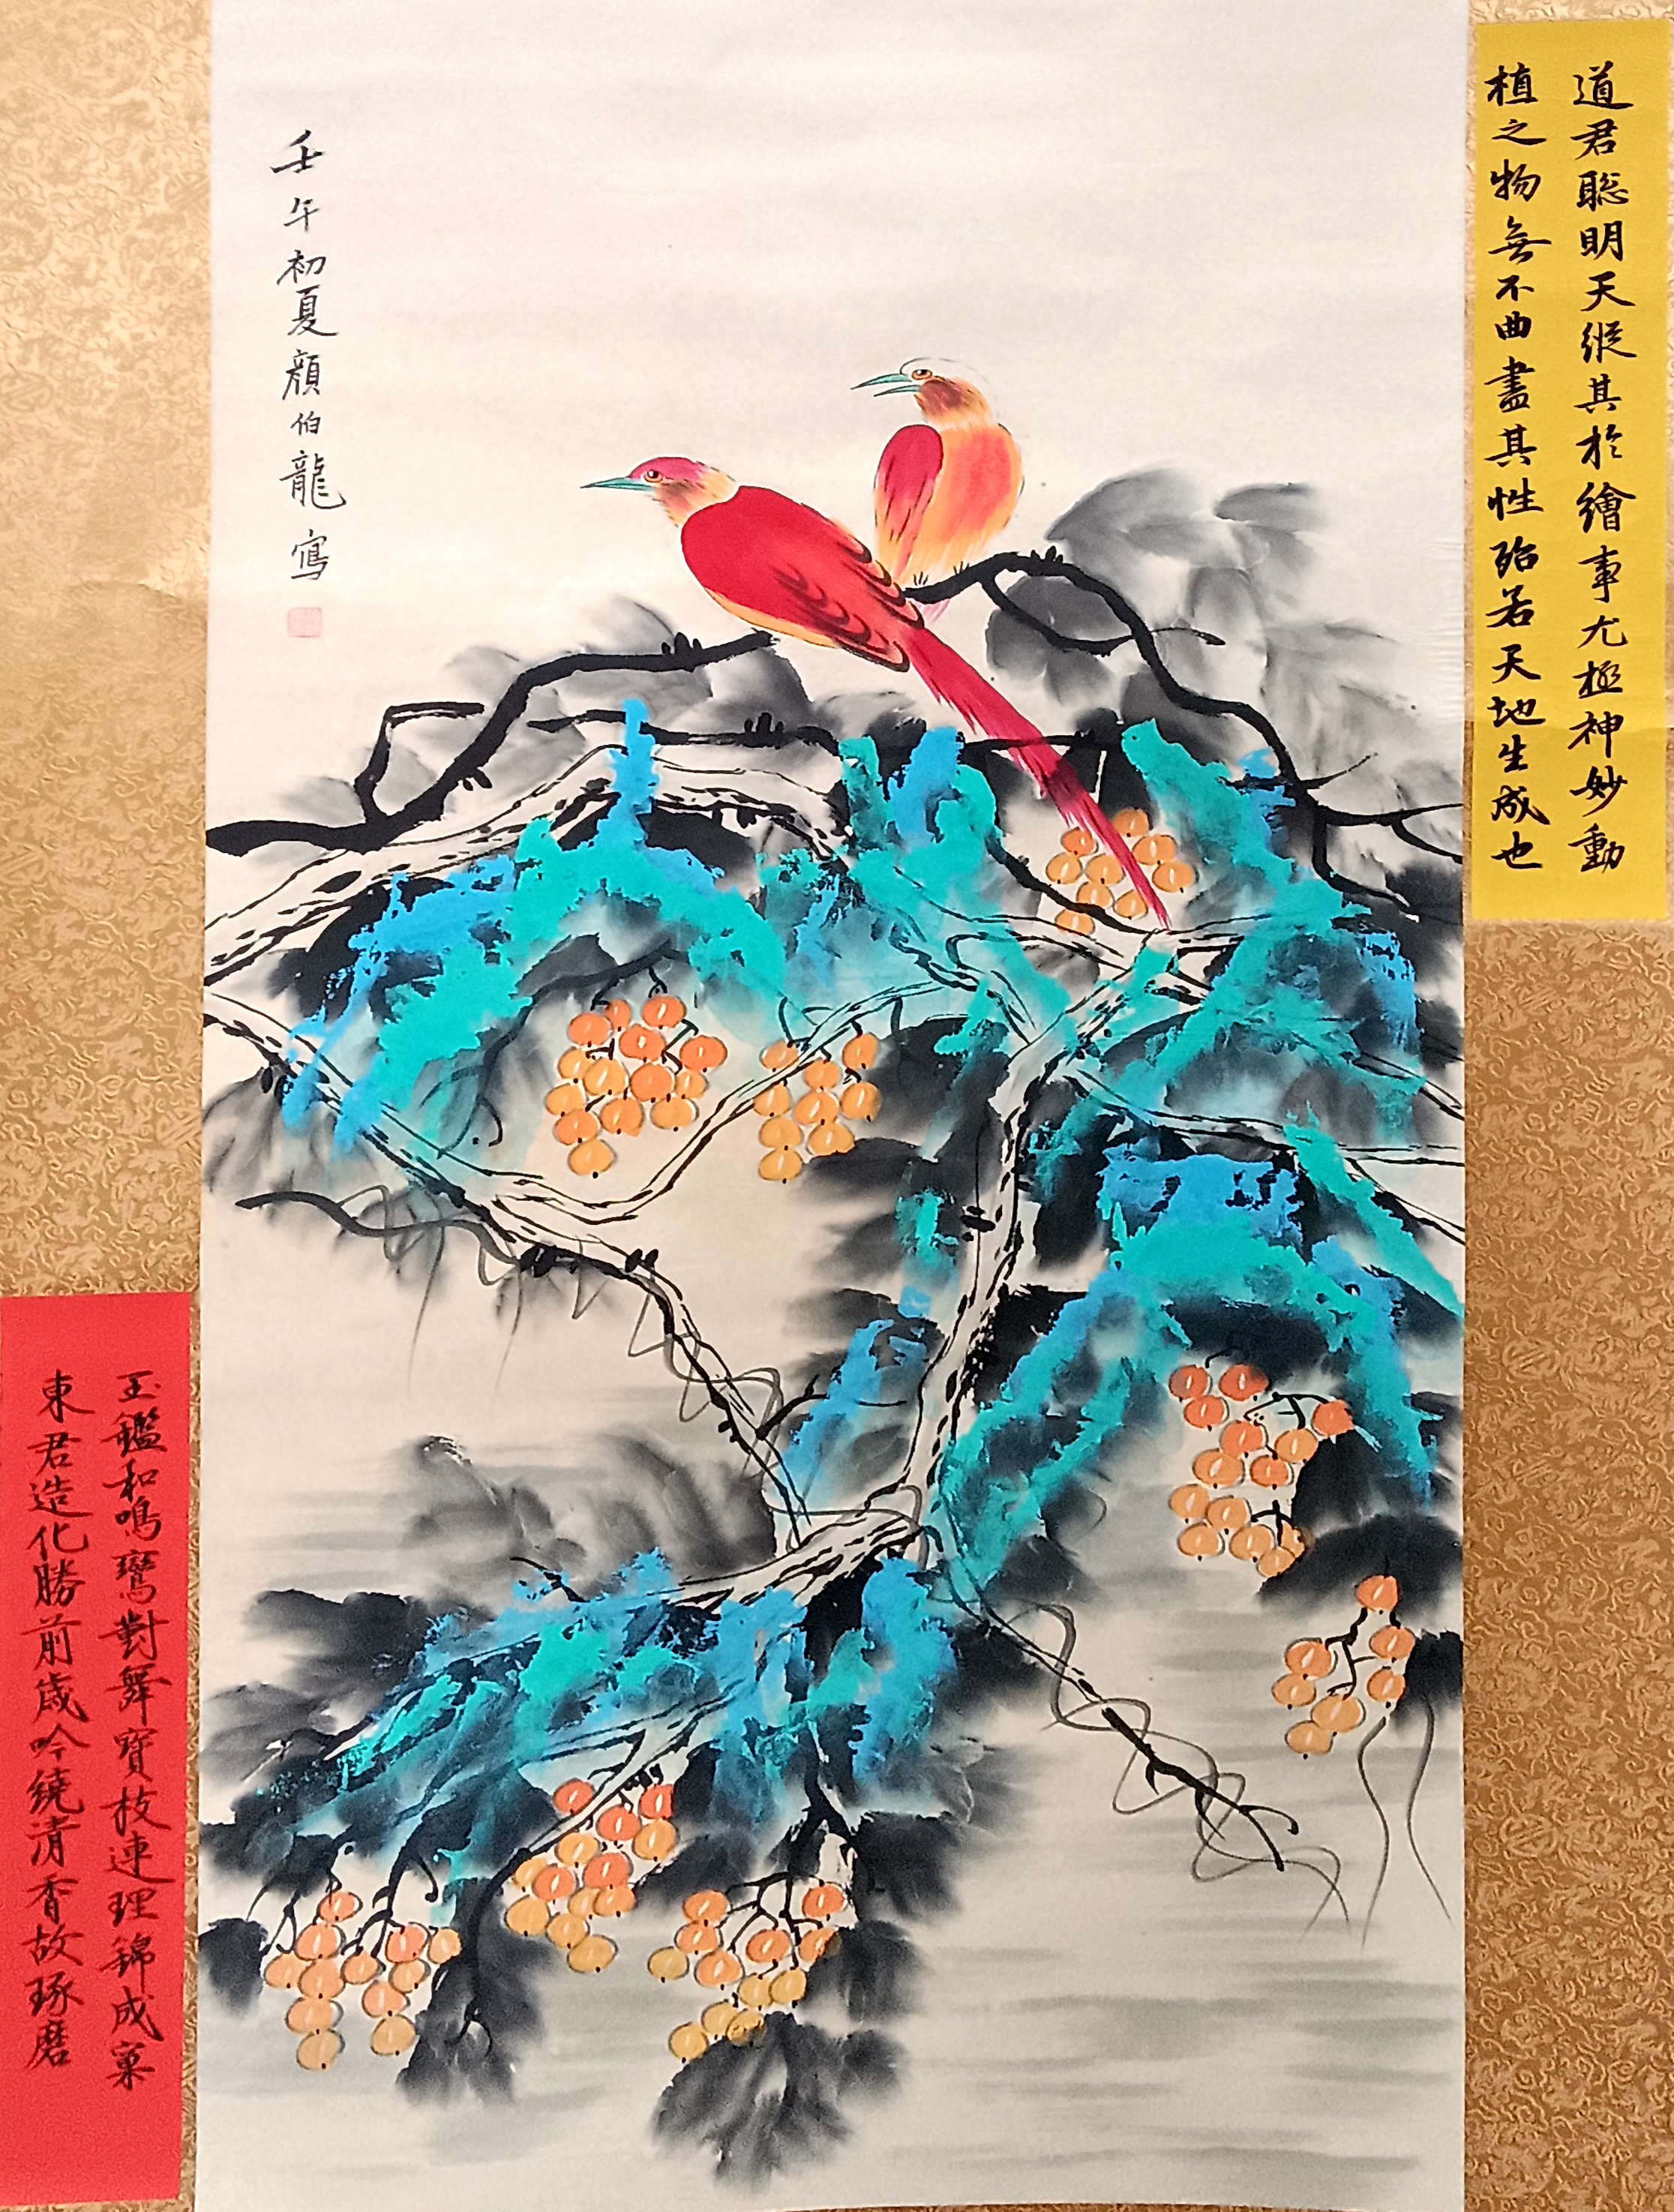 道君聪明天縱其於繪事尤極神妙動
植之物無不曲盡其性殆若天地生成也
壬午初夏顏伯龍寫
玉鑑和鳴鸞對舞寶枝連理錦成窠
東君造化勝前歲吟繞清香故琢磨